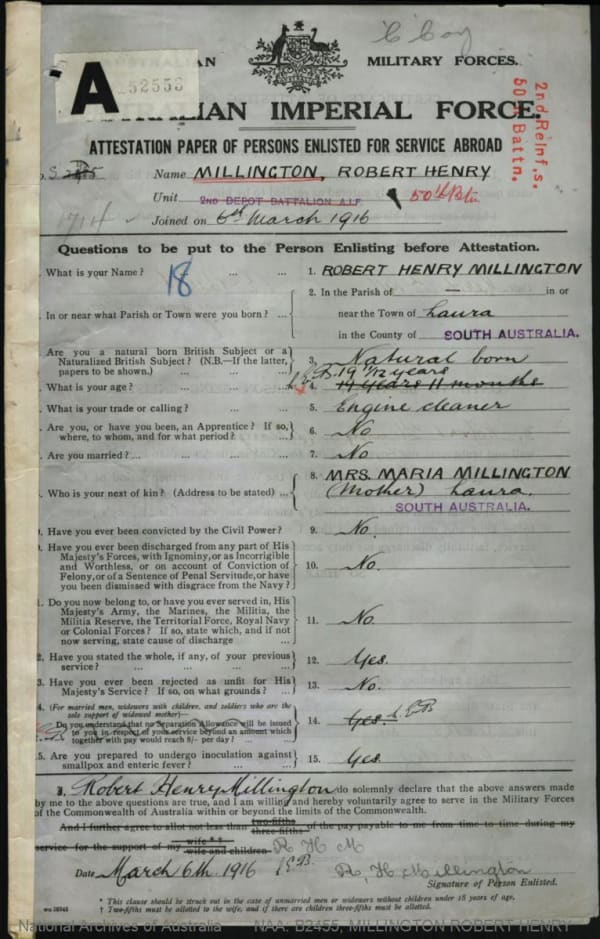 C Coy
A
52553
AN MILITARY FORCES.
TRALIAN IMPERIAL FORCE.
2nd Reinf.s.
50th Battn.
ATTESTATION PAPER OF PERSONS ENLISTED FOR SERVICE ABROAD
Name MILLINGTON, ROBERT HENRY
Unit 2ND DEPOT BATTALION A.I.F 50th Btn
1714 Joined on 6th March 1916
Questions to be put to the Person Enlisting before Attestation.
18
. What is your Name? ... ... 1. ROBERT HENRY MILLINGTON
2. In the Parish of — in or
. In or near what Parish or Town were you born? ... near the Town of Laura
in the County of SOUTH AUSTRALIA.
. Are you a natural born British Subject or a
Naturalized British Subject? (N.B.—If the latter,
papers to be shown.) ... ... ... 3. Natural born
19 1/12 years
. What is your age? ... ... ... 4. 17 years 11 months
. What is your trade or calling? ... ... 5. Engine cleaner
. Are you, or have you been, an Apprentice? If so,
where, to whom, and for what period? ... 6. No
. Are you married? ... ... ... 7. No
. Who is your next of kin? (Address to be stated) ... 8. MRS. MARIA MILLINGTON
(Mother) Laura.
SOUTH AUSTRALIA.
. Have you ever been convicted by the Civil Power? 9. No.
. Have you ever been discharged from any part of His
Majesty's Forces, with Ignominy, or as Incorrigible
and Worthless, or on account of Conviction of
Felony, or of a Sentence of Penal Servitude, or have
you been dismissed with disgrace from the Navy? 10. No.
1. Do you now belong to, or have you ever served in, His
Majesty's Army, the Marines, the Militia, the
Militia Reserve, the Territorial Force, Royal Navy
or Colonial Forces? If so, state which, and if not
now serving, state cause of discharge 11. No
2. Have you stated the whole, if any, of your previous
service? ... ... ... ... 12. Yes.
3. Have you ever been rejected as unfit for His
Majesty's Service? If so, on what grounds? ... 13. No.
4. (For married men, widowers with children, and soldiers who are the
sole support of widowed mother)—
Do you understand that no Separation Allowance will be issued
to you in respect of your service beyond an amount which
together with pay would reach 8/- per day? ... 14. Yes.
5. Are you prepared to undergo inoculation against
smallpox and enteric fever? ... ... 15. Yes
I, Robert Henry Millington do solemnly declare that the above answers made
by me to the above questions are true, and I am willing and hereby voluntarily agree to serve in the Military Forces
of the Commonwealth of Australia within or beyond the limits of the Commonwealth.
And I further agree to allot not less than two-fifths three-fifths of the pay payable to me from time to time during my
service for the support of my wife * † wife and children R H M
Date March 6th 1916 R. H. Millington
Signature of Person Enlisted.
* This clause should be struck out in the case of unmarried men or widowers without children under 18 years of age.
† Two-fifths must be allotted to the wife, and if there are children three-fifths must be allotted.
National Archives of Australia NAA: B2455, MILLINGTON ROBERT HENRY